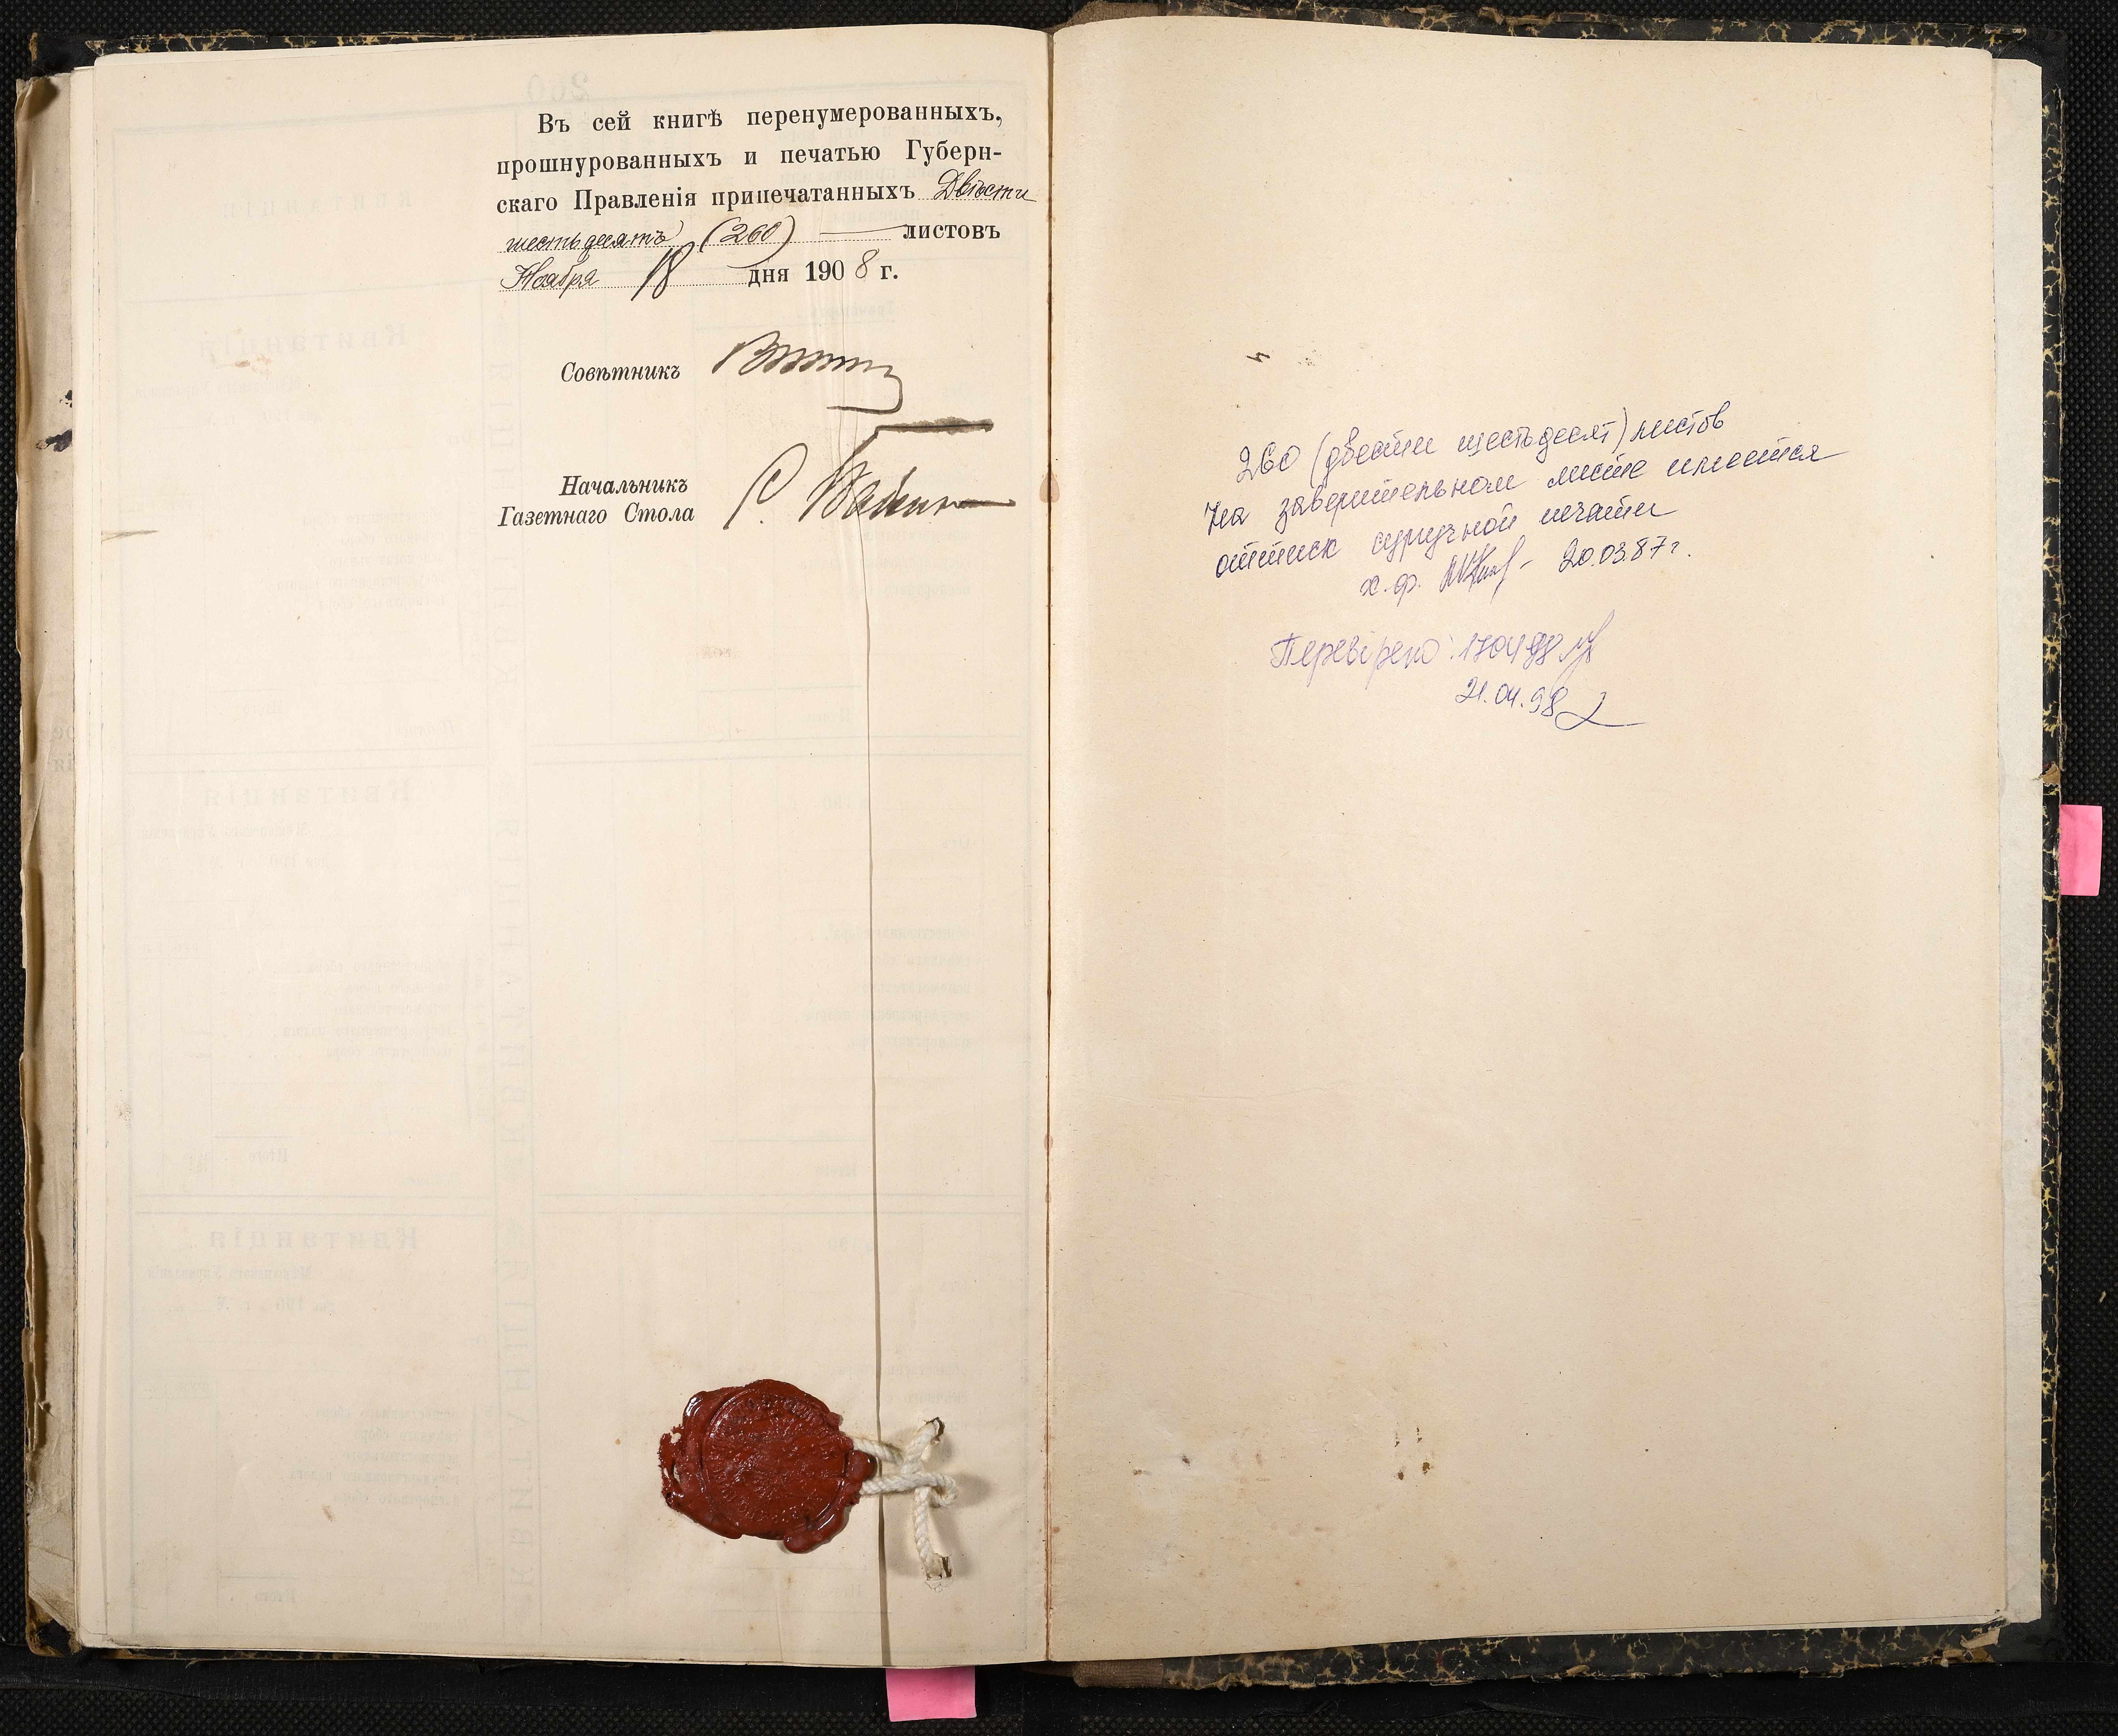 Въ сей книгѣ перенумерованныхъ,
прошнурованныхъ и печатью Губерн-
скаго Правленія припечатанныхъ Двѣсти
шестьдесятъ (260) листовъ
Ноября 18 дня 1908 г.
Совѣтникъ
Начальникъ
Газетнаго Стола
260 (двести шестьдесят) листов
На заверительном листе имеется
оттиск сургучной печати
х.ф. 20.03.87 г.
Перевірено: 170498
21.04.98